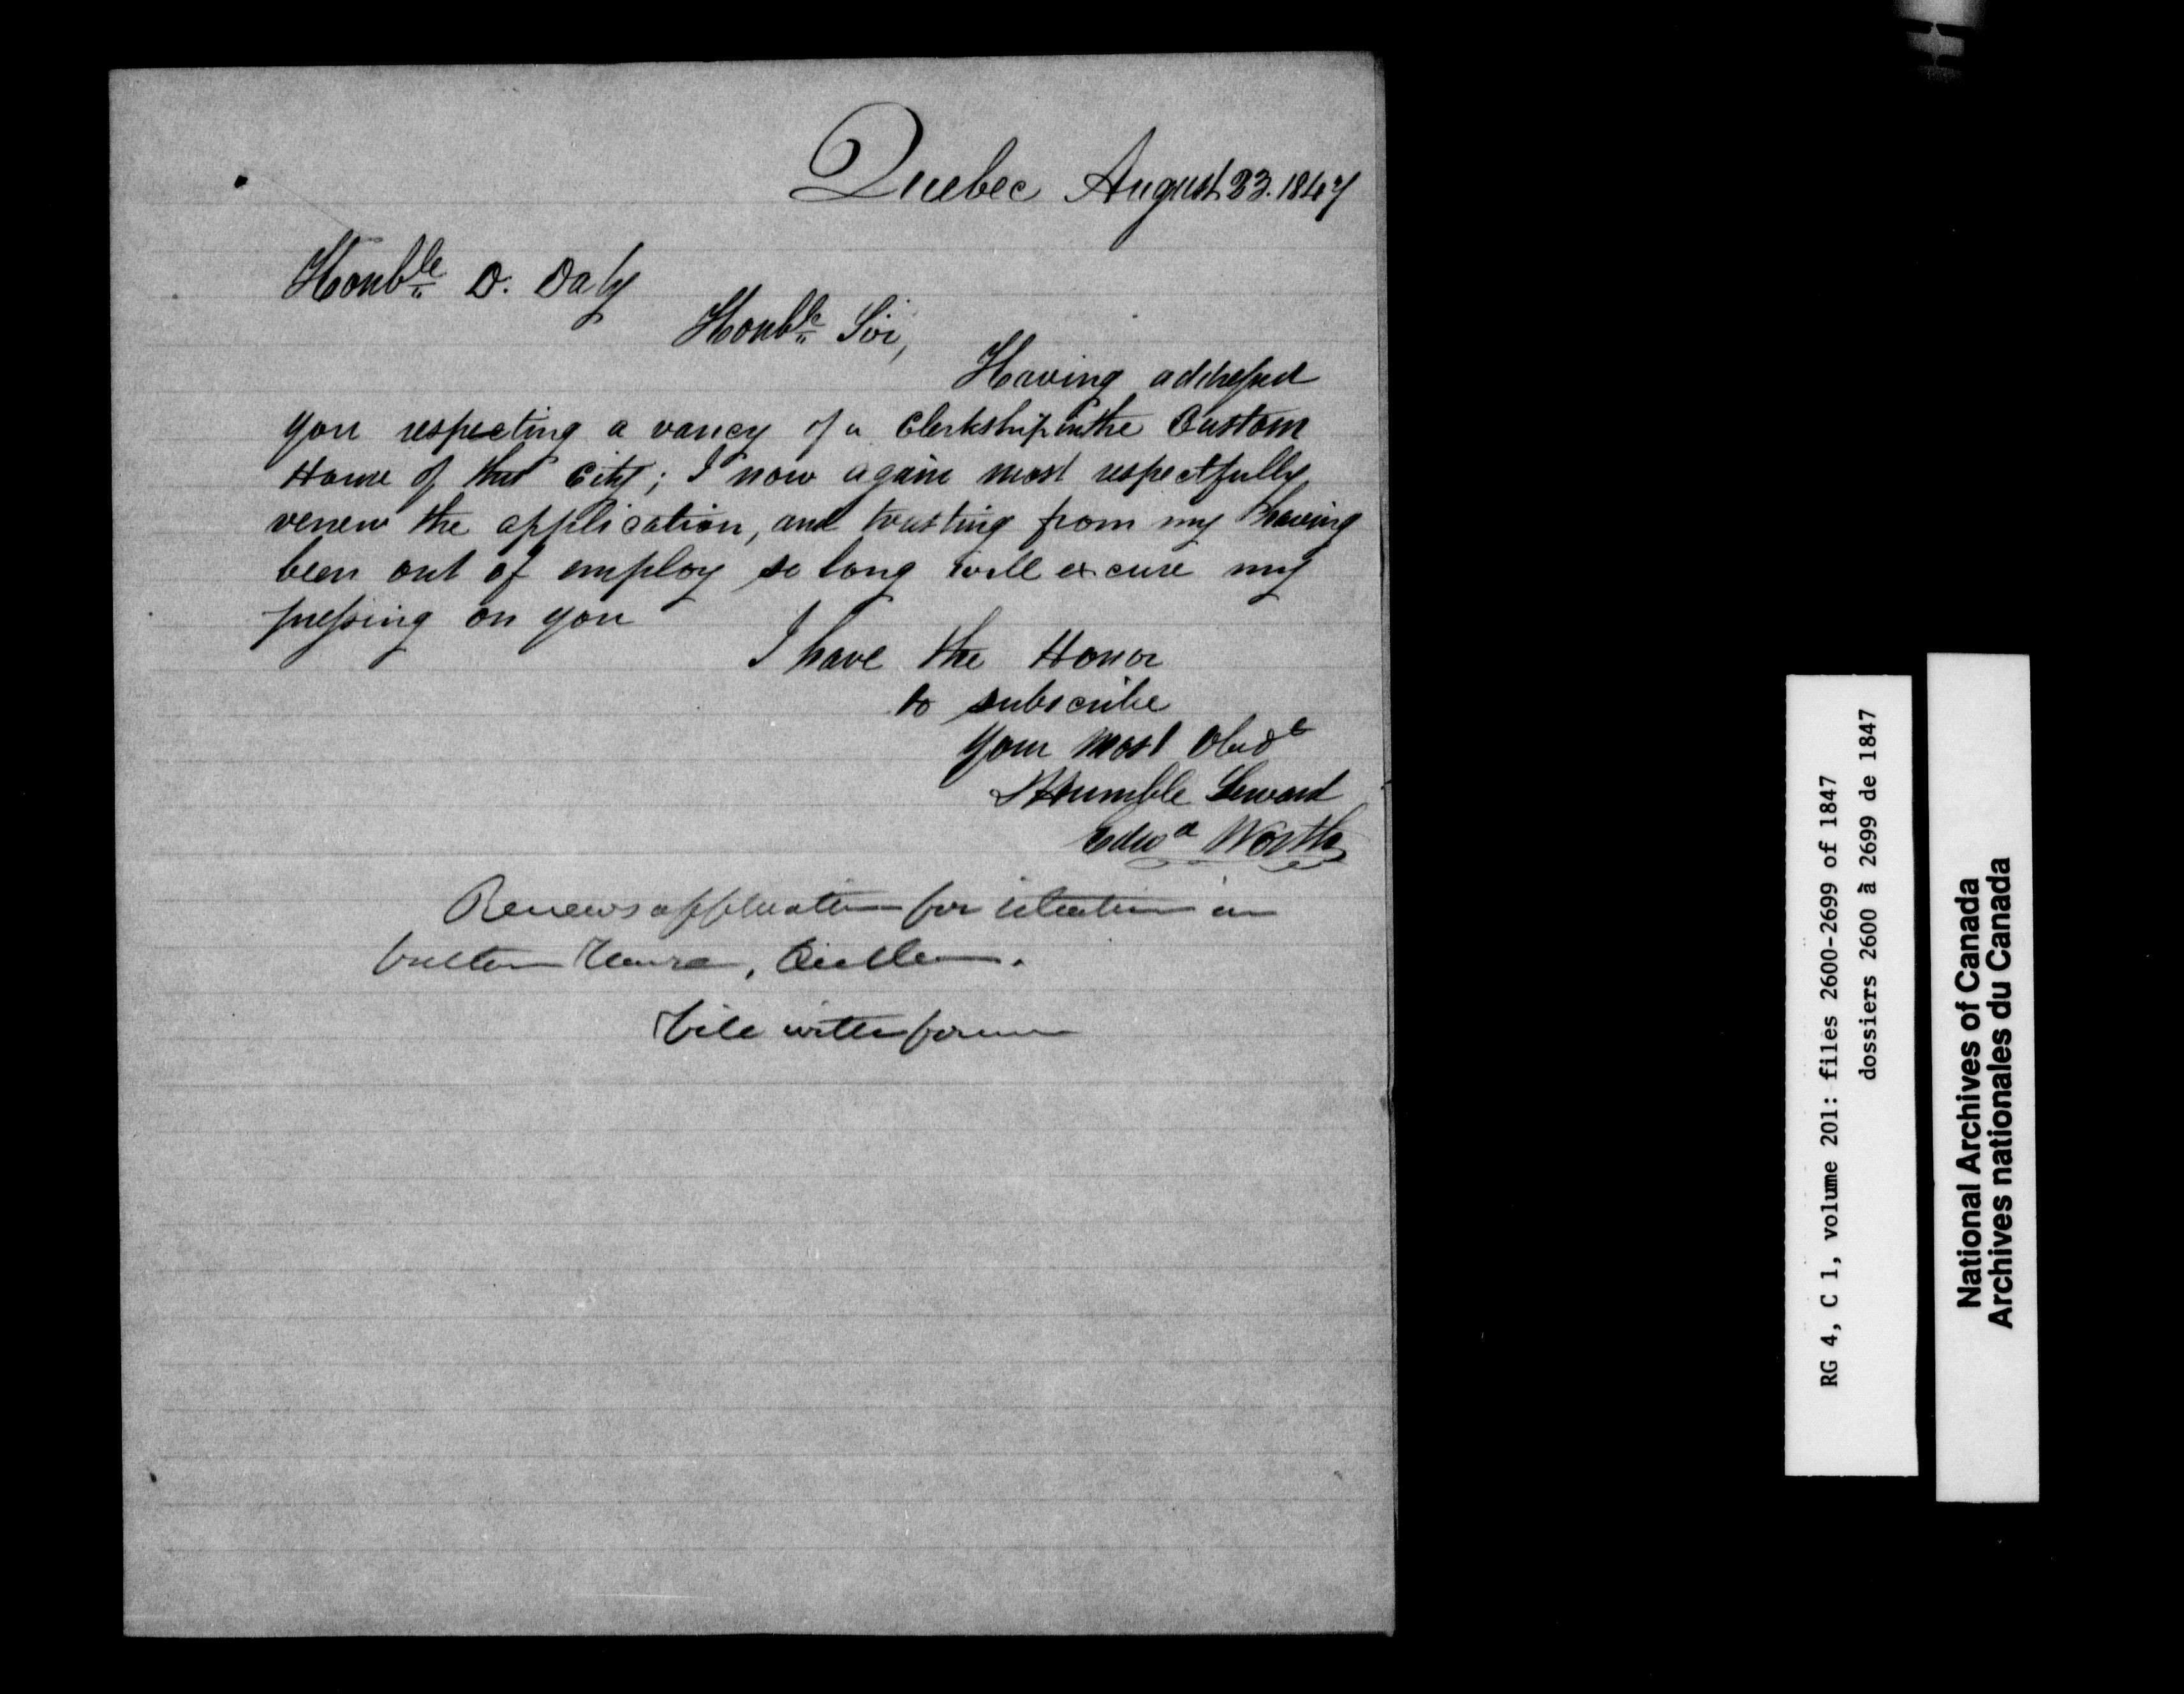 Quebec August 23. 1847
Honble D. Daly
Honble Sir,
Having addressed
you respecting a vancy of a Clerkship in the Custom
House of this City; I now again most respectfully
renew the application, and trusting from my having
been out of employ so long will excuse my
pressing on you
I have the Honor
to subscribe
your most Obedt
& Humble Servant
Edwd Worth
Renews application for situation in
Custom House, Quebec.
File with former
RG 4, C 1, volume 201: files 2600-2699 of 1847
dossiers 2600 à 2699 de 1847
National Archives of Canada
Archives nationales du Canada